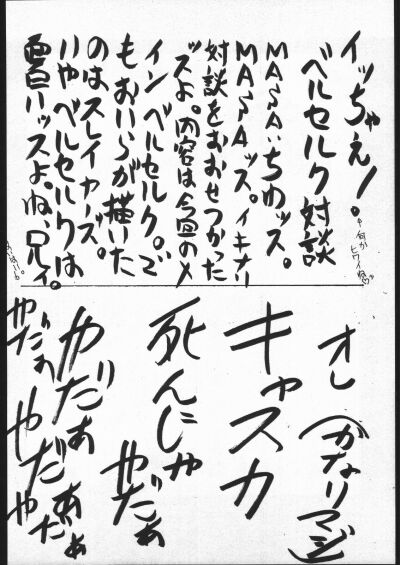 イッちゃえ!。
ベルセルク対談
↑何か
ヒワイね♡
MASAいちわッス。
MASAッス。イキナリ
対談をおおせつかった
ッスよ。内容は今回のメ
イン ベルセルク。で
もおいらが描いた
のはスレイヤーズ。
いやベルセルクは
面白いッスよ。ね、兄ィ。
オレ(かなりマジ)
キャスカ
死んじゃ
やだぁ
やだぁぁ
やだぁ
やだぁ
やだぁ